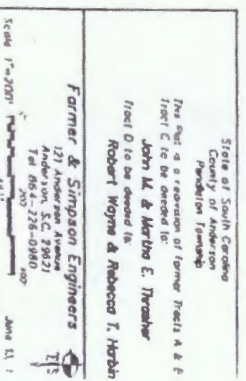 State of South Carolina
County of Anderson
Pendleton Township
This Plat is a revision of former Tracts A &
Tract C to be deeded to:
John M. & Martha E. Thrasher
Tract D to be deeded to:
Robert Wayne & Rebecca T. Harbin
Farmer & Simpson Engineers
121 Anderson Avenue
Anderson, S.C. 29621
Tel 864-226-0980
Scale 1"=200'
200
June 11